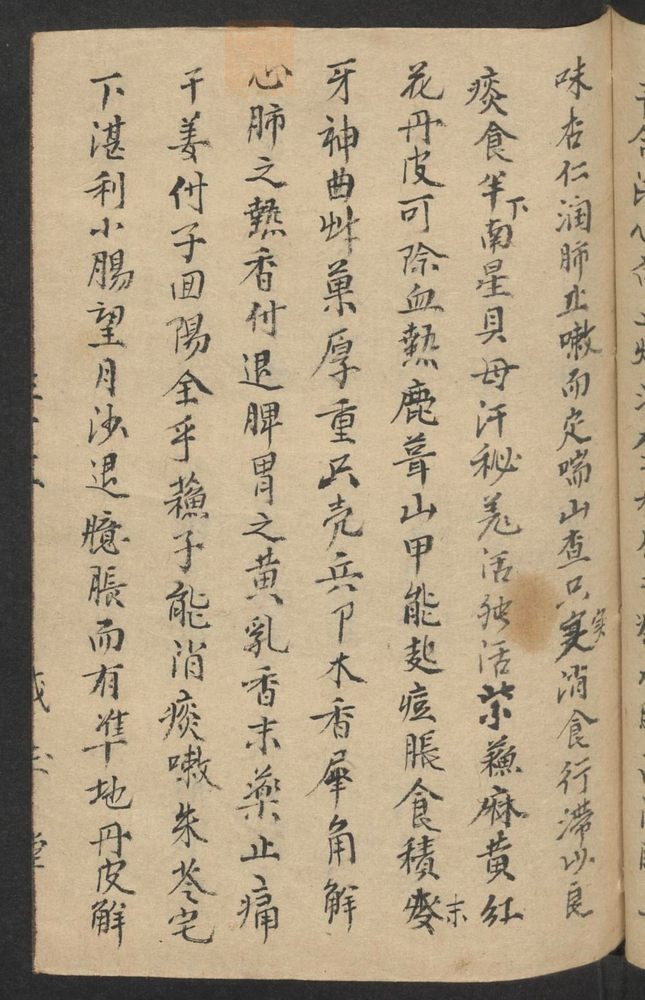 味杏仁润肺止嗽而定喘山查只寔實消食行滞必良
痰食半下南星貝母汗秘羌活独活紫蘓麻黄红
花丹皮可除血熱鹿葺山甲能起痘脹食積發末
牙神曲草菓厚重只壳兵卩木香犀角解
心肺之熱香付退脾胃之黄乳香末藥止痛
干姜付子回陽全乎蘓子能消痰嗽朱苓宅
下湛利小腸望月沙退臆脹而有準地丹皮解